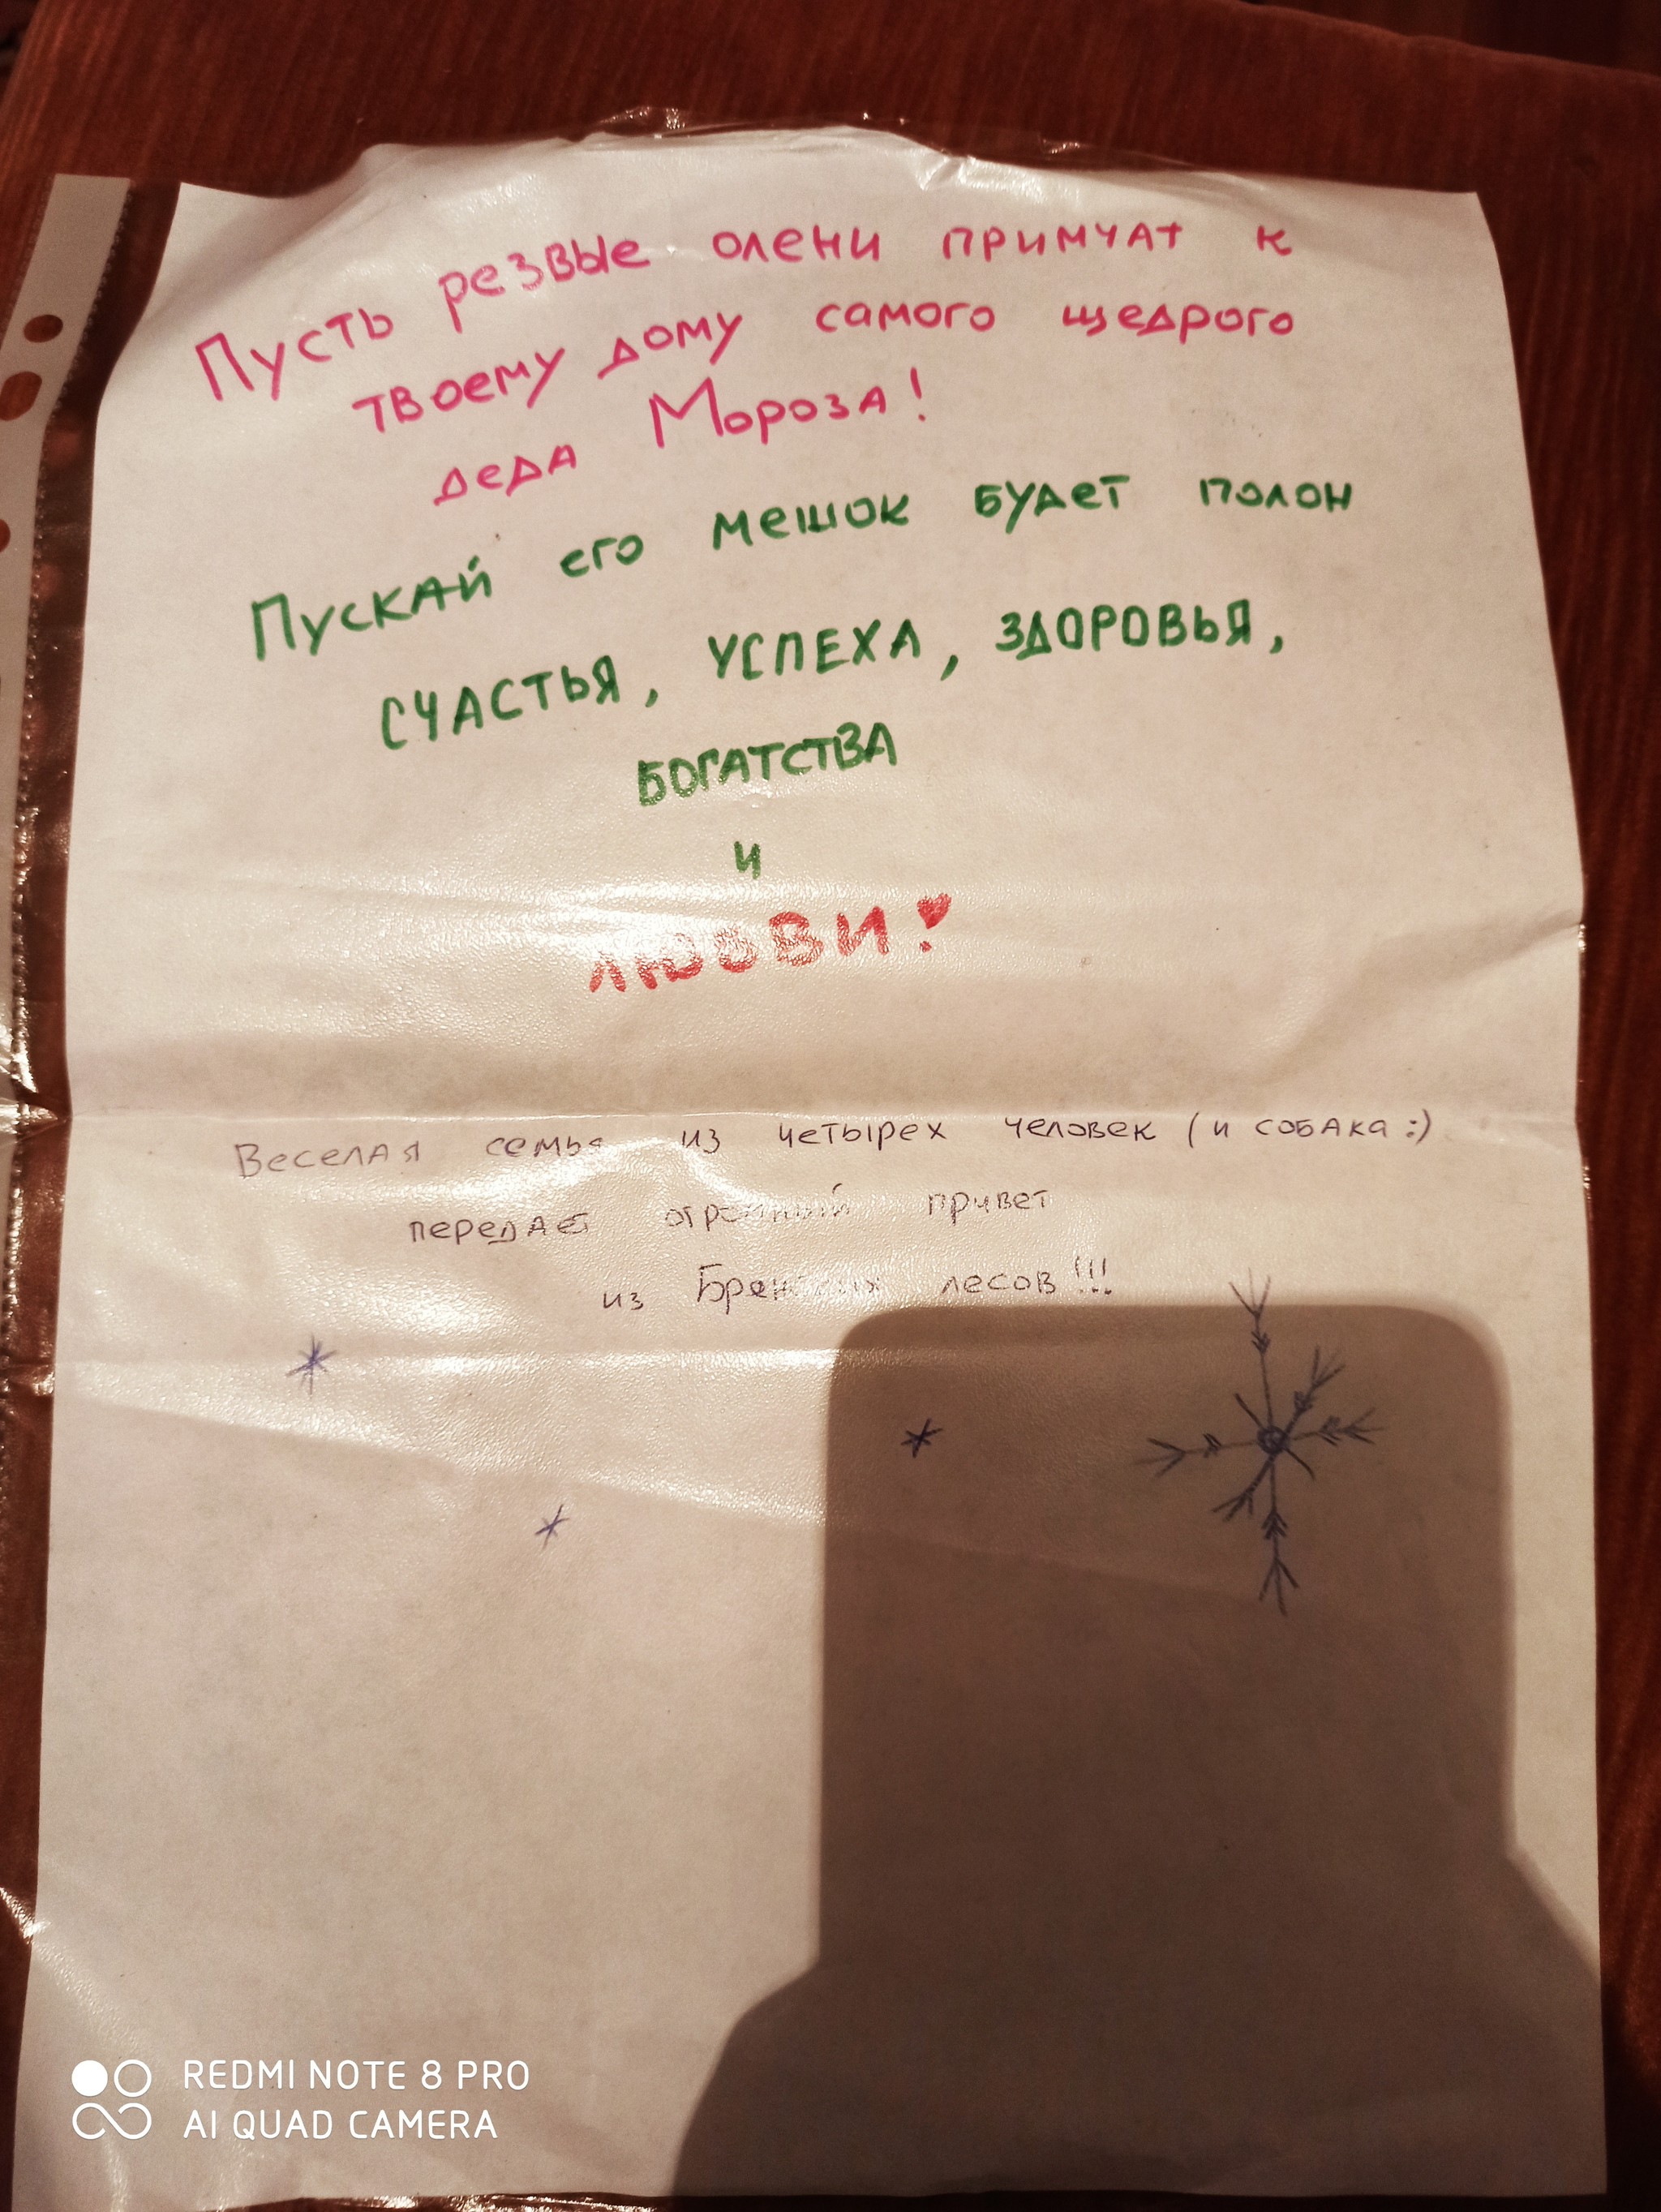 Пусть резвые олени примчат к
твоему дому самого щедрого
деда Мороза!
Пускай его мешок будет полон
СЧАСТЬЯ, УСПЕХА, ЗДОРОВЬЯ,
БОГАТСТВА
и
ЛЮБВИ!
Веселая семья из четырех человек (и собака :)
передает огромный привет
из лесов!!!
REDMI NOTE 8 PRO
AI QUAD CAMERA